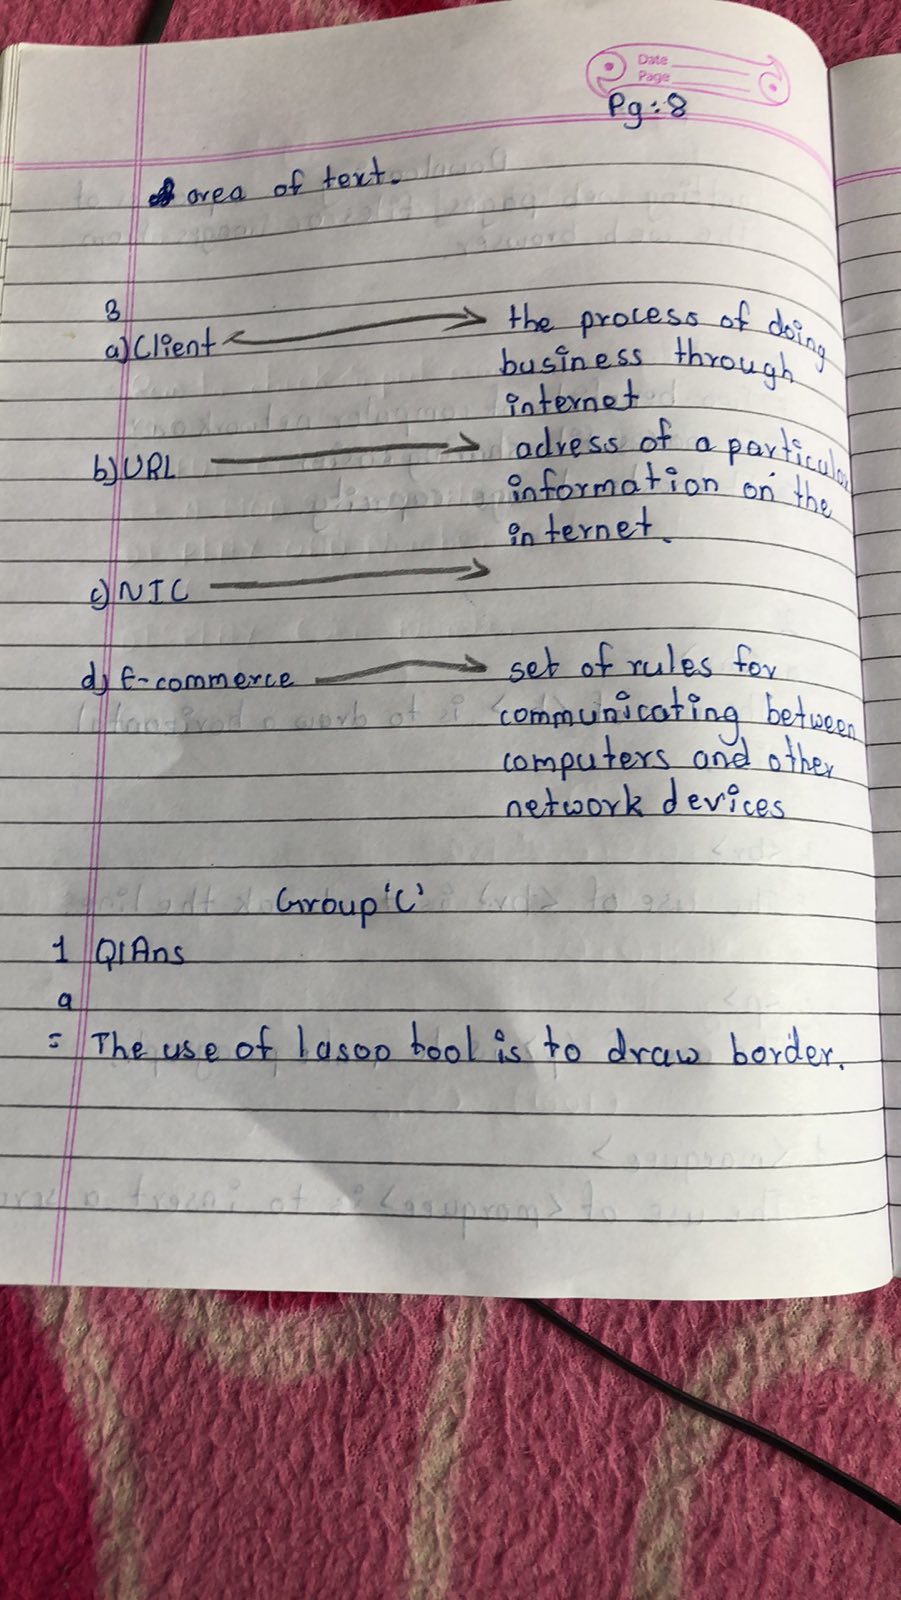 Date
Page
Pg:8
area of text.
3
a) Client the process of doing
business through
internet
b) URL adress of a particular
information on the
internet.
c) NIC
d) E-commerce set of rules for
communicating between
computers and other
network devices
Group 'C'
1 Q1Ans
a
= The use of lasoo tool is to draw border.